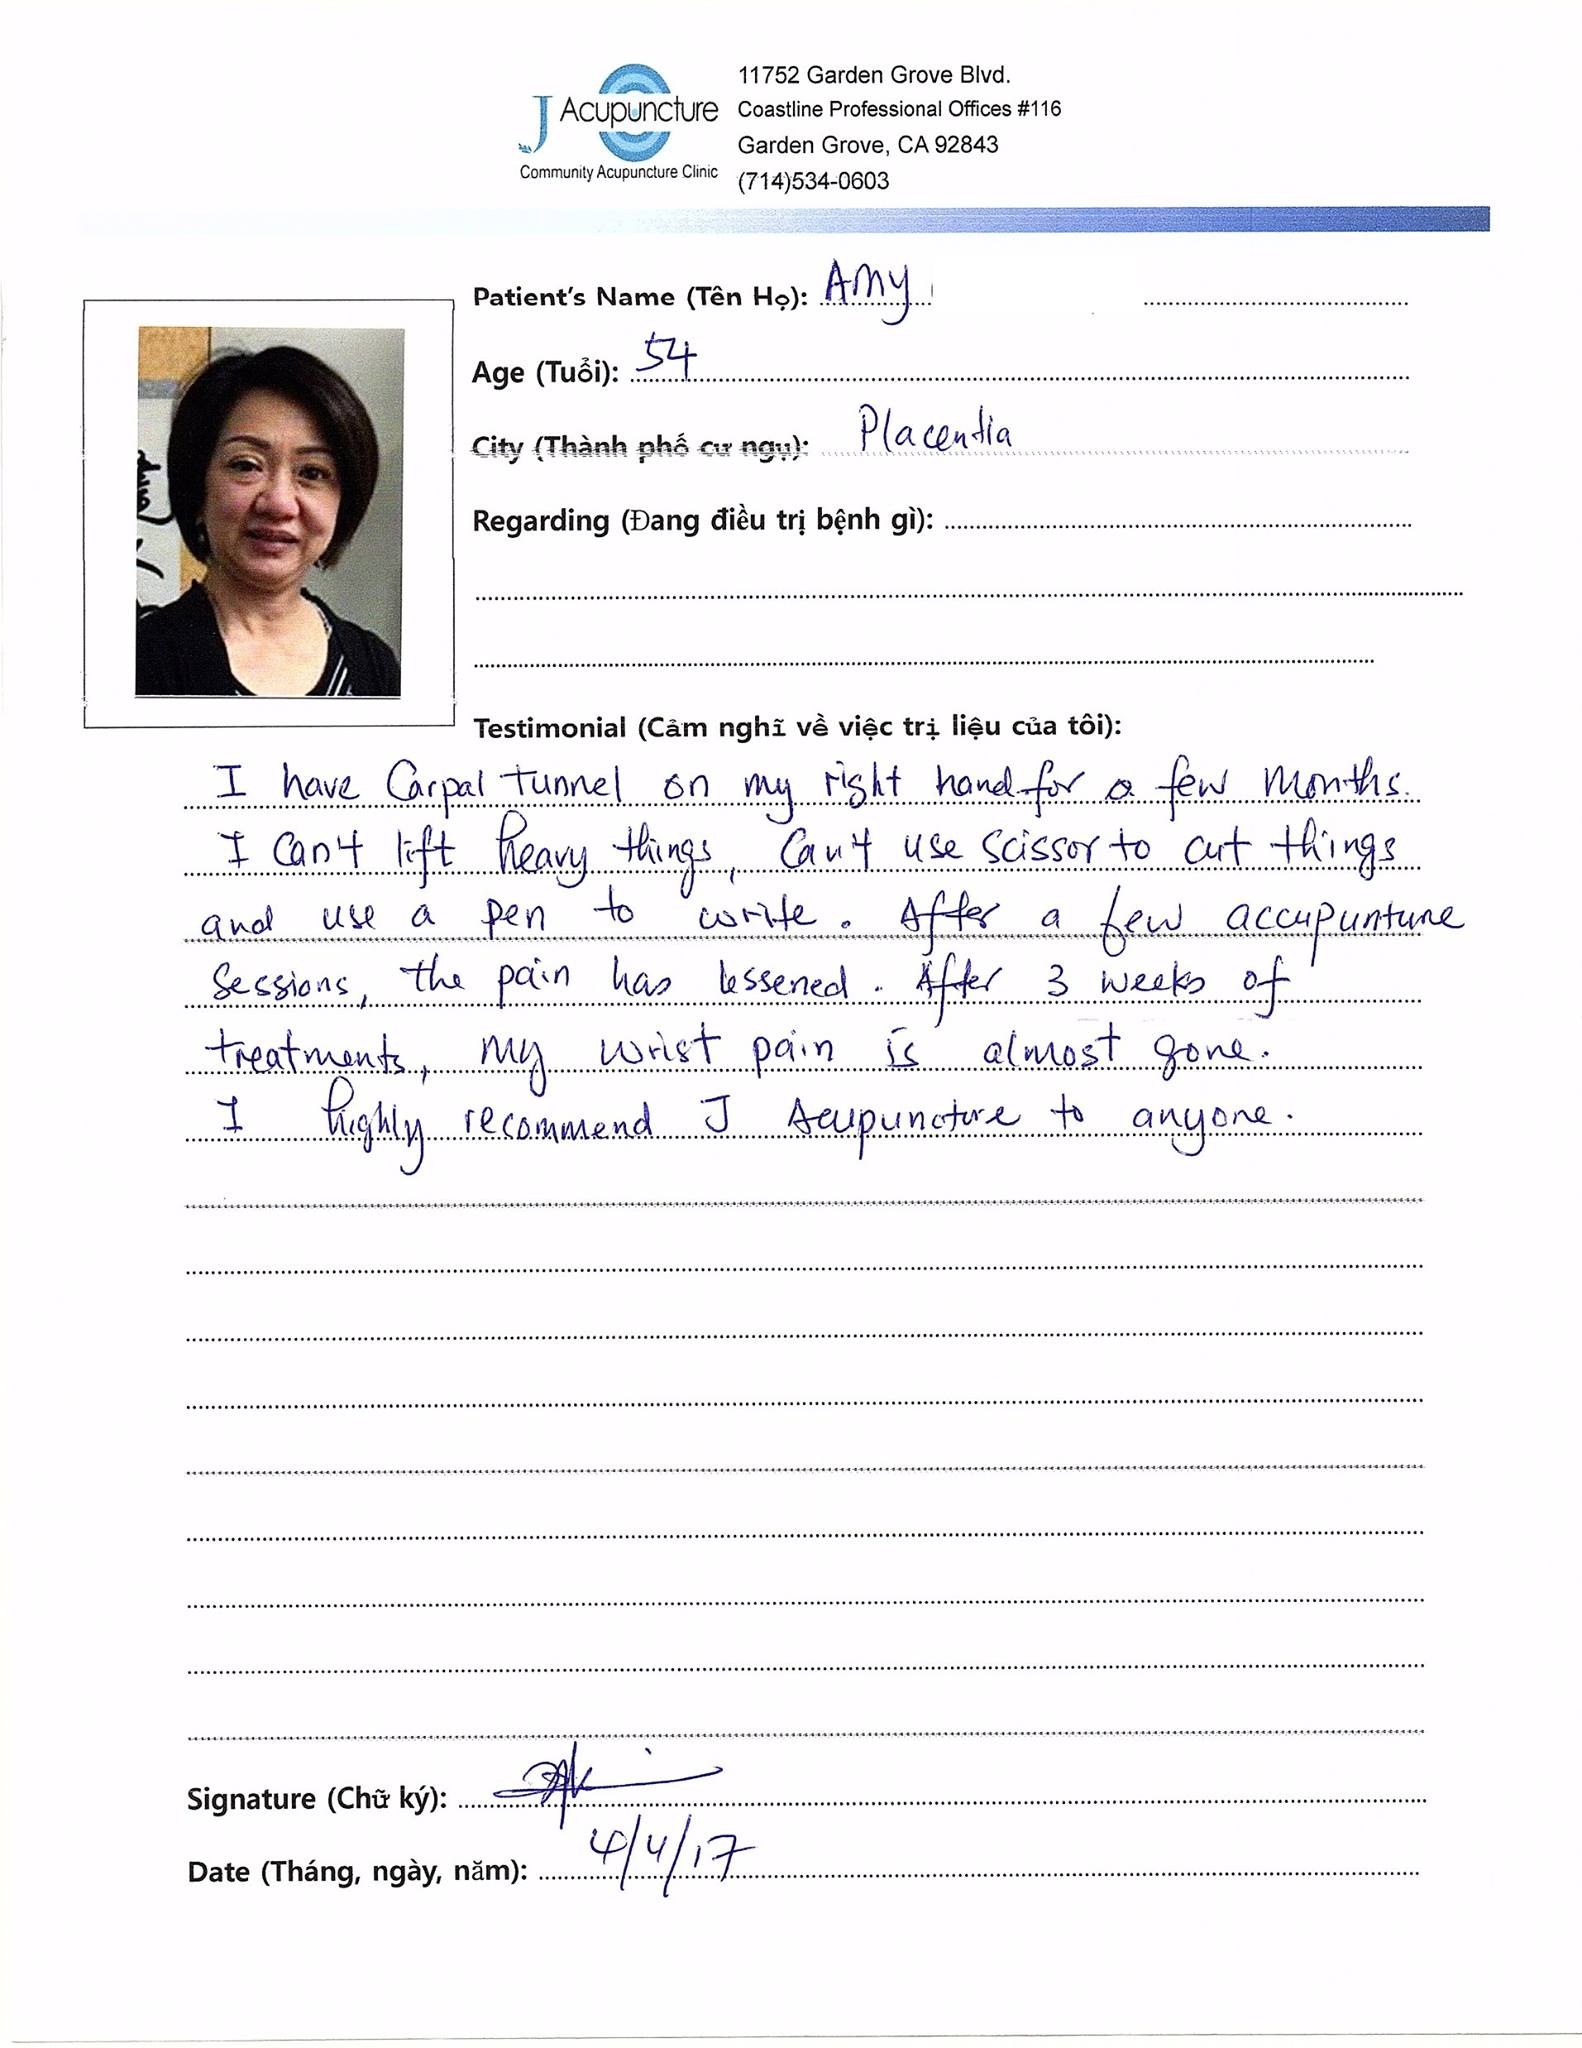 J Acupuncture
Community Acupuncture Clinic
11752 Garden Grove Blvd.
Coastline Professional Offices #116
Garden Grove, CA 92843
(714)534-0603
Patient's Name (Tên Họ): Amy
Age (Tuổi): 54
City (Thành phố cư ngụ): Placentia
Regarding (Đang điều trị bệnh gì):
Testimonial (Cảm nghĩ về việc trị liệu của tôi):
I have Carpal tunnel on my right hand for a few months.
I can't lift heavy things, can't use scissor to cut things
and use a pen to write. After a few accupunture
sessions, the pain has lessened. After 3 weeks of
treatments, my wrist pain is almost gone.
I highly recommend J Acupuncture to anyone.
Signature (Chữ ký):
Date (Tháng, ngày, năm): 4/4/17